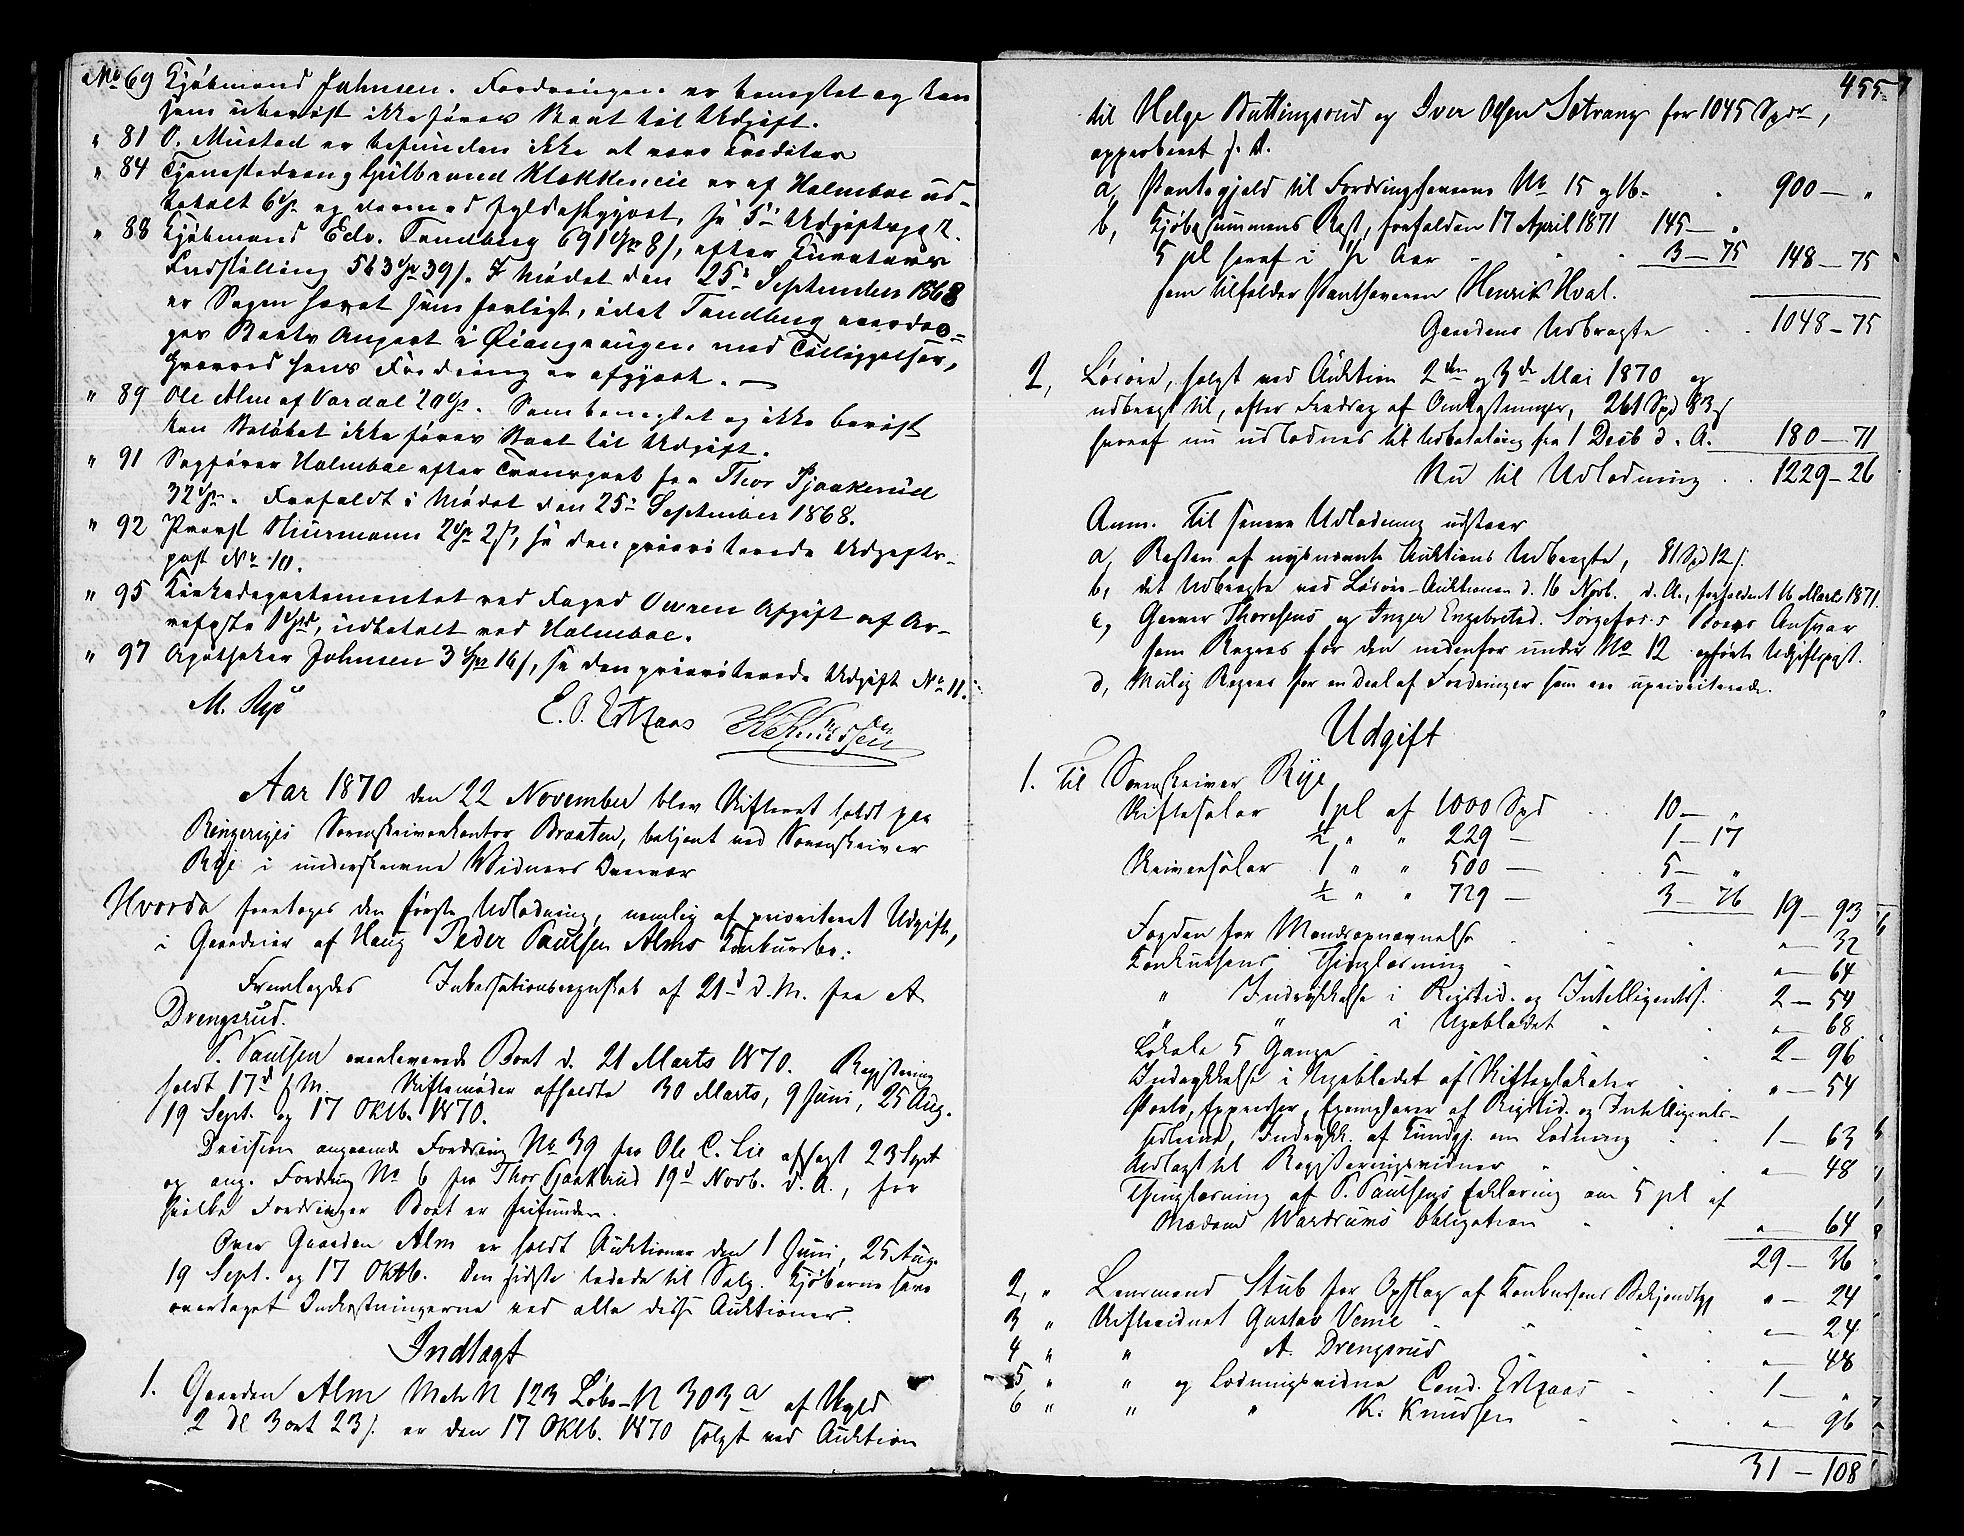 No 69 Kjøbmand Johnsen. Fordringen er benegtet og kan
som ubeviist ikke føres Boet til Udgift.
" 81 O. Mustad er befunden ikke at være Creditor
" 84 Tjenestedreng Gulbrand Klækkeneie er af Holmboe ud-
betalt 6 Spd og dermed fyldestgjort, se 5te Udgiftspost.
" 88 Kjøbmand Edv. Tandberg 691 Spd 8 s, efter Curators
Indstilling 563 Spd 39 s. I Mødet den 25de September 1868
er Sagen hævet som forligt, idet Tandberg overdra-
ger Boets Anpart i Øiangsaugen med Tilliggelser,
hvorved hans Fordring er afgjort. —
" 89 Ole Alm af Vardal 20 Spd. Som benegtet og ikke bevist
kan Beløbet ikke føres Boet til Udgift.
" 91 Sagfører Holmboe efter Transport fra Thor Tjaakerud
32 Spd. Frafaldt i Mødet den 25de September 1868.
" 92 Provst Hiurmann 2 Spd 2 s, se den prioriterede Udgifts-
post No 10.
" 95 Kirkedepartementet ved Foged Owren Afgift af Ar-
vefæste 1 Spd, udbetalt ved Holmboe.
" 97 Apotheker Johnsen 3 Spd 16 s, se den prioriterede Udgift No 11.
M. Rye E. O. Estkaas K Knudsen
Aar 1870 den 22 November blev Skifteret holdt paa
Ringeriges Sorenskriverkontor Braaten, betjent ved Sorenskriver
Rye i underskrevne Vidners Overvær
Hvorda foretoges den første Udlodning, nemlig af prioriteret Udgift,
i Gaardeier af Haug Peder Paulsen Alms Konkursbo.
Fremlagdes Inkassationsregnskab af 21de d. M. fra A
Drengsrud.
P. Paulsen overleverede Boet d. 21 Marts 1870. Registrering
holdt 17de f. M. Skiftemøder afholdte 30 Marts, 9 Juni, 25 Aug.
19 Sept. og 17 Oktb. 1870.
Decision angaaende Fordring No 39 fra Ole C. Lie afsagt 23 Sept
og ang. Fordring No 6 fra Thor Tjaakrud 19de Novb. d. A., for
hvilke Fordringer Boet er frifunden.
Over Gaarden Alm er holdt Auktioner den 1 Juni, 25 Aug.
19 Sept. og 17 Oktb. Den sidste ledede til Salg. Kjøberne have
overtaget Omkostningerne ved alle disse Auktioner.
Indtægt
1. Gaarden Alm Matr N 123 Løbe-N 303 a af Skyld
2 Dl 3 ort 23 s. er den 17 Oktb. 1870 solgt ved Auktion
455
til Helge Buttingsrud og Iver Olsen Setrang for 1045 Spdr,
opgebaaret s. D.
a, Pantegjeld til Fordringshaverne No 15 og 16 . 900 — "
b, Kjøbesummens Rest, forfalden 17 April 1871 145 — "
5 pCt heraf i ½ Aar 3 — 75 148 — 75
som tilfalder Panthaveren Henrik Hval.
Gaardens Udbragte . . 1048 — 75
2, Løsøre, solgt ved Auktion 2den og 3de Mai 1870 og
udbragt til, efter Fradrag af Omkostninger, 261 Spd 83 s
heraf nu udlodnes til Udbetaling fra 1 Decb d. A. 180 — 71
Nu til Udlodning . . 1229 — 26
Anm. Til senere Udlodning udstaar
a, Resten af nysnævnte Auktions Udbragte, 81 Spd 12 s.
b, det Udbragte ved Løsøre-Auktionen d. 16 Novb. d. A., forfaldent 16 Marts 1871.
c, Gunner Thoresens og Inger Engebretsd. Sørgefos's Boers Ansvar
som Regres for den nedenfor under No 12 opførte Udgiftspost.
d, Mulig Regres for en Deel af Fordringer som ere uprioriterede.
Udgift
1. Til Sorenskriver Rye
Skiftesalær 1 pCt af 1000 Spd . . 10 — "
½ " " 229 — 1 — 17
Skriversalær 1 " " 500 — . . 5 — "
½ " " 729 — 3 — 76 19 — 93
Fogden for Mandsopnævnelse . . . " — 32
Konkursens Thinglæsning . . " — 64
" Indrykkelse i Rigstid. og Intelligents. 2 — 54
" " i Ugebladet . . " — 68
Lokale 5 Gange . . . 2 — 96
Indrykkelse i Ugebladet af Skifteplakater . . " — 54
Porto, Expresser, Exemplarer af Rigstid. og Intelligents-
sedlerne, Indrykk. af Kundgj. om Lodning . . 1 — 63
Udlagt til Registreringsvidner . . " — 48
Thinglæsning af P. Paulsens Erklæring om 5 pCt af
Madame Wardrums Obligation . . " — 64
29 — 36
2, " Lensmand Stub for Opslag af Konkursens Bekjendtgj " — 24
3 " Skiftevidnet Gustav Veme . . " — 24
4 " " A. Drengsrud . . " — 48
5 " " og Lodningsvidne Cand. Estkaas . . 1 — "
6 " " " K. Knudsen . . " — 96
31 — 108